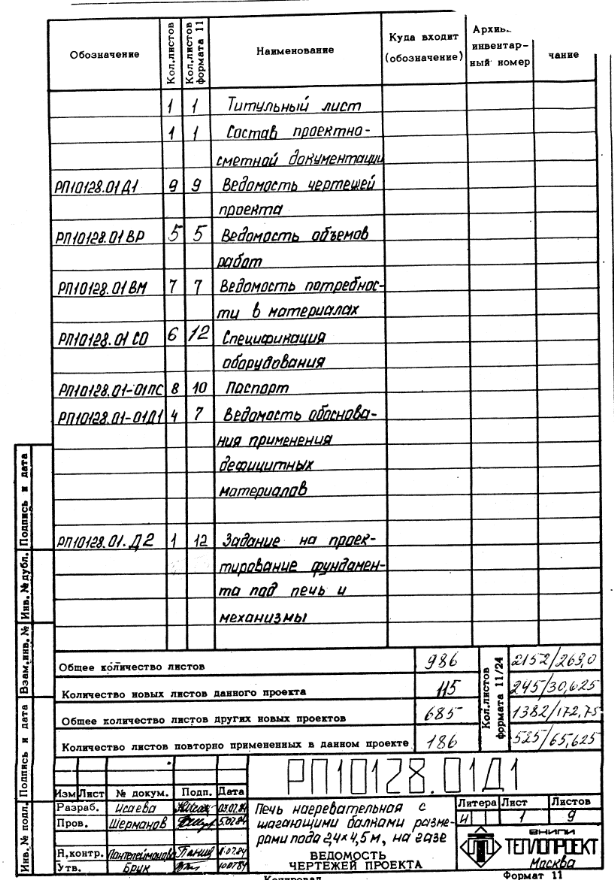 Обозначение Кол.листов Кол.листов формата 11 Наименование Куда входит (обозначение) инвентарный номер чание
1 1 Титульный лист
1 1 Состав проектно-
сметной документации
РП10128.01Д1 9 9 Ведомость чертежей
проекта
РП10128.01ВР 5 5 Ведомость объемов
работ
РП10128.01ВМ 7 7 Ведомость потребнос-
ти в материалах
РП10128.01СО 6 12 Спецификация
оборудования
РП10128.01-01ПС 8 10 Паспорт
РП10128.01-01Д1 4 7 Ведомость обоснова-
ния применения
дефицитных
материалов
РП10128.01.Д2 1 12 Задание на проек-
тирование фундамен-
та под печь и
механизмы
Общее количество листов 986 Кол.листов формата 11/24 2152/269,0
Количество новых листов данного проекта 115 245/30,625
Общее количество листов других новых проектов 685 1382/172,75
Количество листов повторно примененных в данном проекте 186 525/65,625
Инв.№ подл. Подпись и дата Взам.инв.№ Инв.№дубл. Подпись и дата
РП10128.01Д1
Изм Лист № докум. Подп. Дата
Разраб. Исаева
Пров. Шерманов
Н.контр. Пантелеймонова
Утв. Брик
Печь нагревательная с
шагающими балками разме-
рами пода 2,4×4,5м, на газе
ВЕДОМОСТЬ
ЧЕРТЕЖЕЙ ПРОЕКТА
Литера Лист Листов
И 1 9
ВНИПИ
ТЕПЛОПРОЕКТ
Москва
Копировал Формат 11